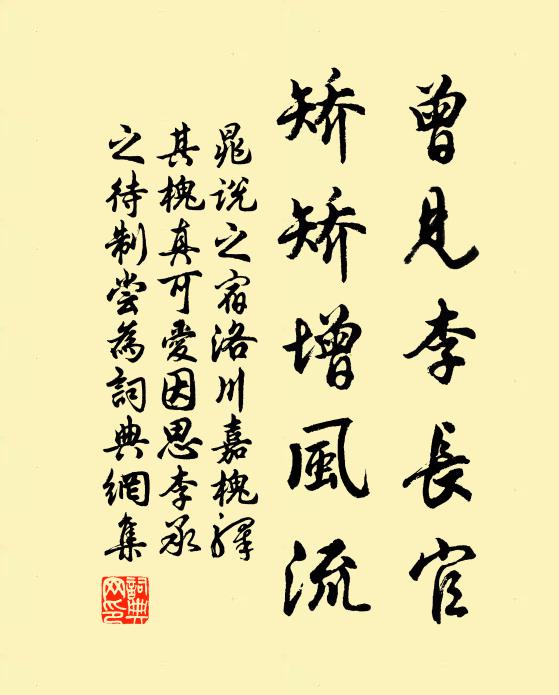 曾見李長官
矯矯增風流
晁說之宿洛川嘉槐驛
其槐真可愛因思李承
之待制嘗為詞典網集
詞典網印